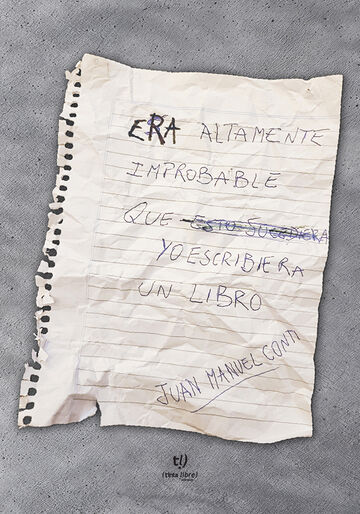 ERA ALTAMENTE
IMPROBABLE
QUE ESTO SUCEDIERA
YO ESCRIBIERA
UN LIBRO
JUAN MANUEL CONTI
t!)
(tinta libre)